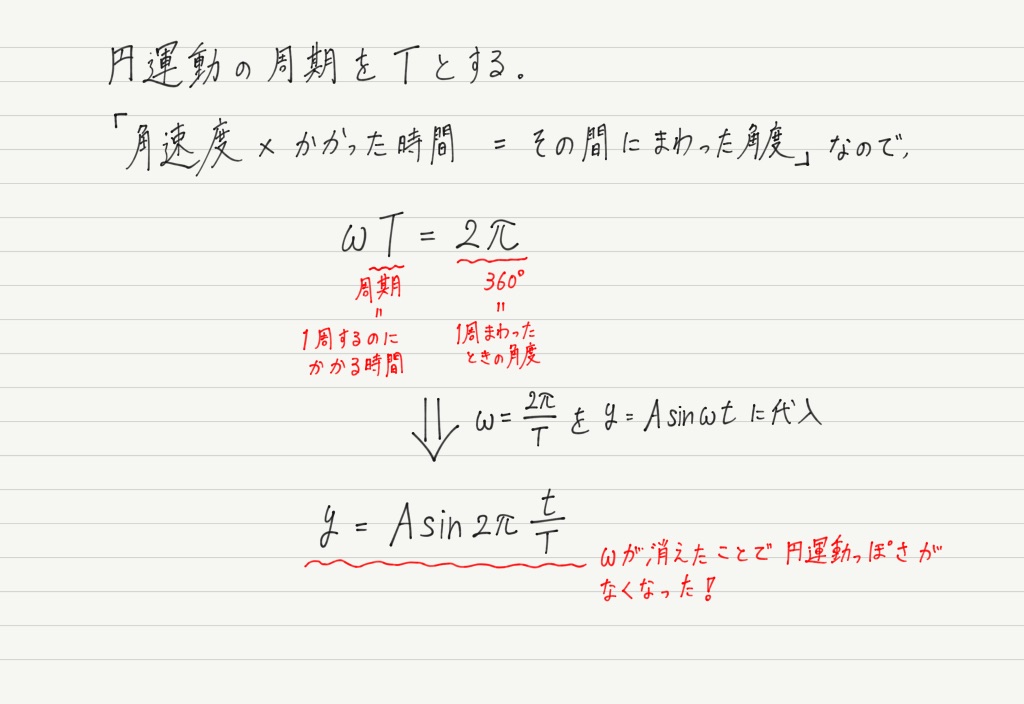 円運動の周期をTとする。
「角速度 × かかった時間 = その間にまわった角度」なので、
ωT = 2π
周期
〃
1周するのに
かかる時間
360°
〃
1周まわった
ときの角度
ω = 2π/T を y = A sin ωt に代入
y = A sin 2π t/T
ωが消えたことで円運動っぽさが
なくなった!